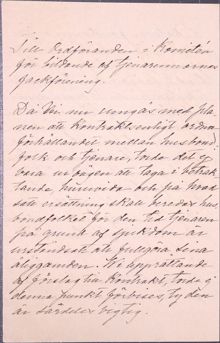 Till Ordföranden i Komitén
för bildande af tjenarinnornas
fackförening.
Då Ni nu umgås med pla
nen att kontraktsenligt ordna
förhållandet mellan husbond-
folk och tjenare, torde det ej
vara ur vägen att taga i betrak
tande huruvida och på hvad
sätt ersättning skall beredas hus
bondfolket för den tid tjenaren
på grund af sjukdom är
urståndsatt att fullgöra sina
åligganden. Vid upprättande
af förslag till kontrakt, torde ej
denna punkt förbises, ty den
är särdeles vigtig.